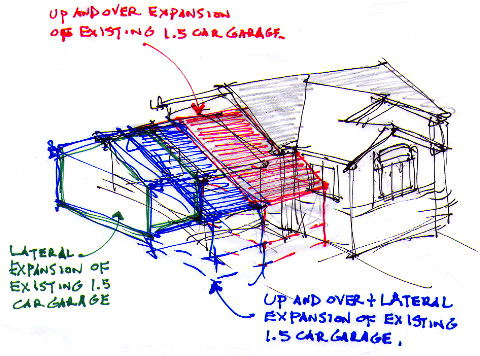 UP AND OVER EXPANSION
OF EXISTING 1.5 CAR GARAGE.
LATERAL
EXPANSION OF
EXISTING 1.5
CAR GARAGE
UP AND OVER + LATERAL
EXPANSION OF EXISTING
1.5 CAR GARAGE.